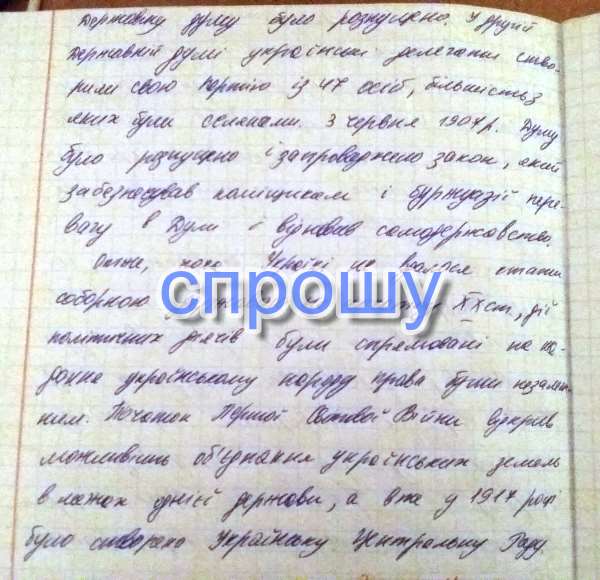 Державну думу було розпущено. У другій
Державній думі українські делегати ство-
рили свою партію із 47 осіб, більшість з
яких були селянами. 3 червня 1907 р. Думу
було розпущено і запроваджено закон, який
забезпечував поміщикам і буржуазії пере-
вагу в Думі і відновив самодержавство.
Отже, хоча Україні не вдалося стати
соборною ХХ ст., дії
спрошу
політичних діячів були спрямовані на на-
дання українському народу права бути незалеж-
ним. Початок Першої Світової Війни відкрив
можливість об'єднання українських земель
в межах однієї держави, а вже у 1917 році
було створено Українську Центральну Раду.